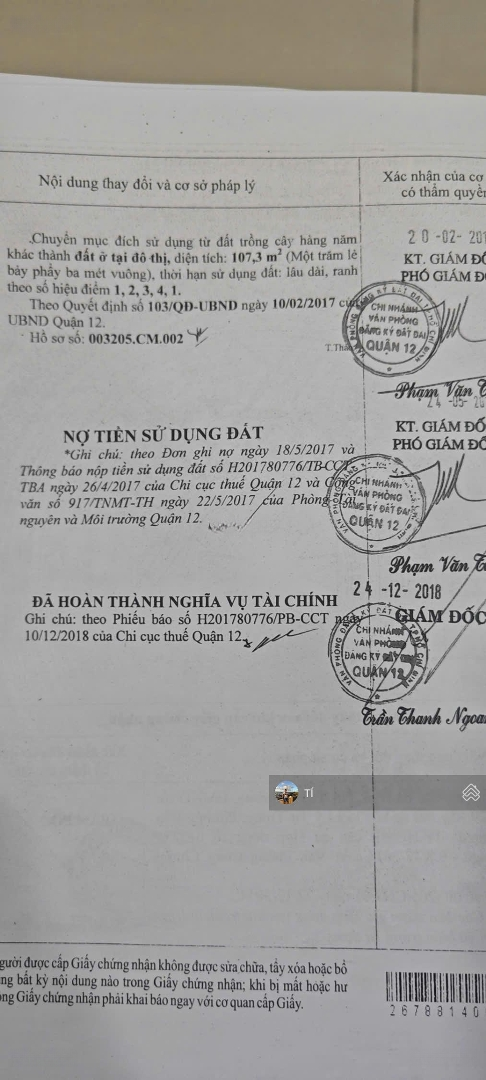 Nội dung thay đổi và cơ sở pháp lý
Xác nhận của cơ
có thẩm quyền
Chuyển mục đích sử dụng từ đất trồng cây hàng năm
khác thành đất ở tại đô thị, diện tích: 107,3 m² (Một trăm lẻ
bảy phẩy ba mét vuông), thời hạn sử dụng đất: lâu dài, ranh
theo số hiệu điểm 1, 2, 3, 4, 1.
Theo Quyết định số 103/QĐ-UBND ngày 10/02/2017 của
UBND Quận 12.
- Hồ sơ số: 003205.CM.002
20-02-201
KT. GIÁM ĐỐ
PHÓ GIÁM ĐỐ
CHI NHÁNH
VĂN PHÒNG
ĐĂNG KÝ ĐẤT ĐAI
QUẬN 12
Phạm Văn T
NỢ TIỀN SỬ DỤNG ĐẤT
*Ghi chú: theo Đơn ghi nợ ngày 18/5/2017 và
Thông báo nộp tiền sử dụng đất số H201780776/TB-CCT-
TBA ngày 26/4/2017 của Chi cục thuế Quận 12 và Công
văn số 917/TNMT-TH ngày 22/5/2017 của Phòng Tài
nguyên và Môi trường Quận 12.
24-05-20
KT. GIÁM ĐỐ
PHÓ GIÁM ĐỐ
CHI NHÁNH
VĂN PHÒNG
ĐĂNG KÝ ĐẤT ĐAI
QUẬN 12
Phạm Văn T
ĐÃ HOÀN THÀNH NGHĨA VỤ TÀI CHÍNH
Ghi chú: theo Phiếu báo số H201780776/PB-CCT ngày
10/12/2018 của Chi cục thuế Quận 12.
24-12-2018
GIÁM ĐỐC
CHI NHÁNH
VĂN PHÒNG
ĐĂNG KÝ ĐẤT ĐAI
QUẬN 12
Trần Thanh Ngoa
Tí
gười được cấp Giấy chứng nhận không được sửa chữa, tẩy xóa hoặc bổ
ng bất kỳ nội dung nào trong Giấy chứng nhận; khi bị mất hoặc hư
ng Giấy chứng nhận phải khai báo ngay với cơ quan cấp Giấy.
26788140